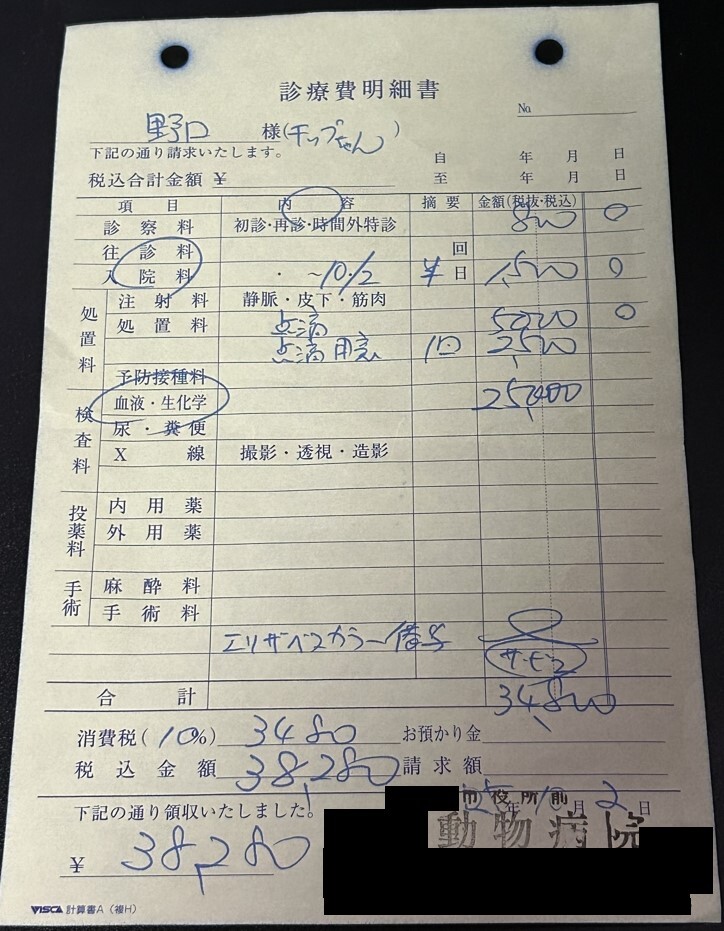 診療費明細書
No
野口 様(チップちゃん)
下記の通り請求いたします。
自 年 月 日
税込合計金額 ¥ 至 年 月 日
項目 内容 摘要 金額(税抜・税込)
診察料 初診・再診・時間外特診 800 0
往診料 回
入院料 ・ ~10/2 半日 1,500 0
処置料 注射料 静脈・皮下・筋肉
処置料 点滴 5000 0
点滴用意 1回 2,500
予防接種料
検査料 血液・生化学 25,000
尿・糞便
X線 撮影・透視・造影
投薬料 内用薬
外用薬
手術 麻酔料
手術料
エリザベスカラー借学
サービス
合計 34,800
消費税(10%) 3480 お預かり金
税込金額 38,280 請求額
下記の通り領収いたしました。
市役所前
年 10月 2日
動物病院
¥ 38,280
VISCA 計算書A(複H)